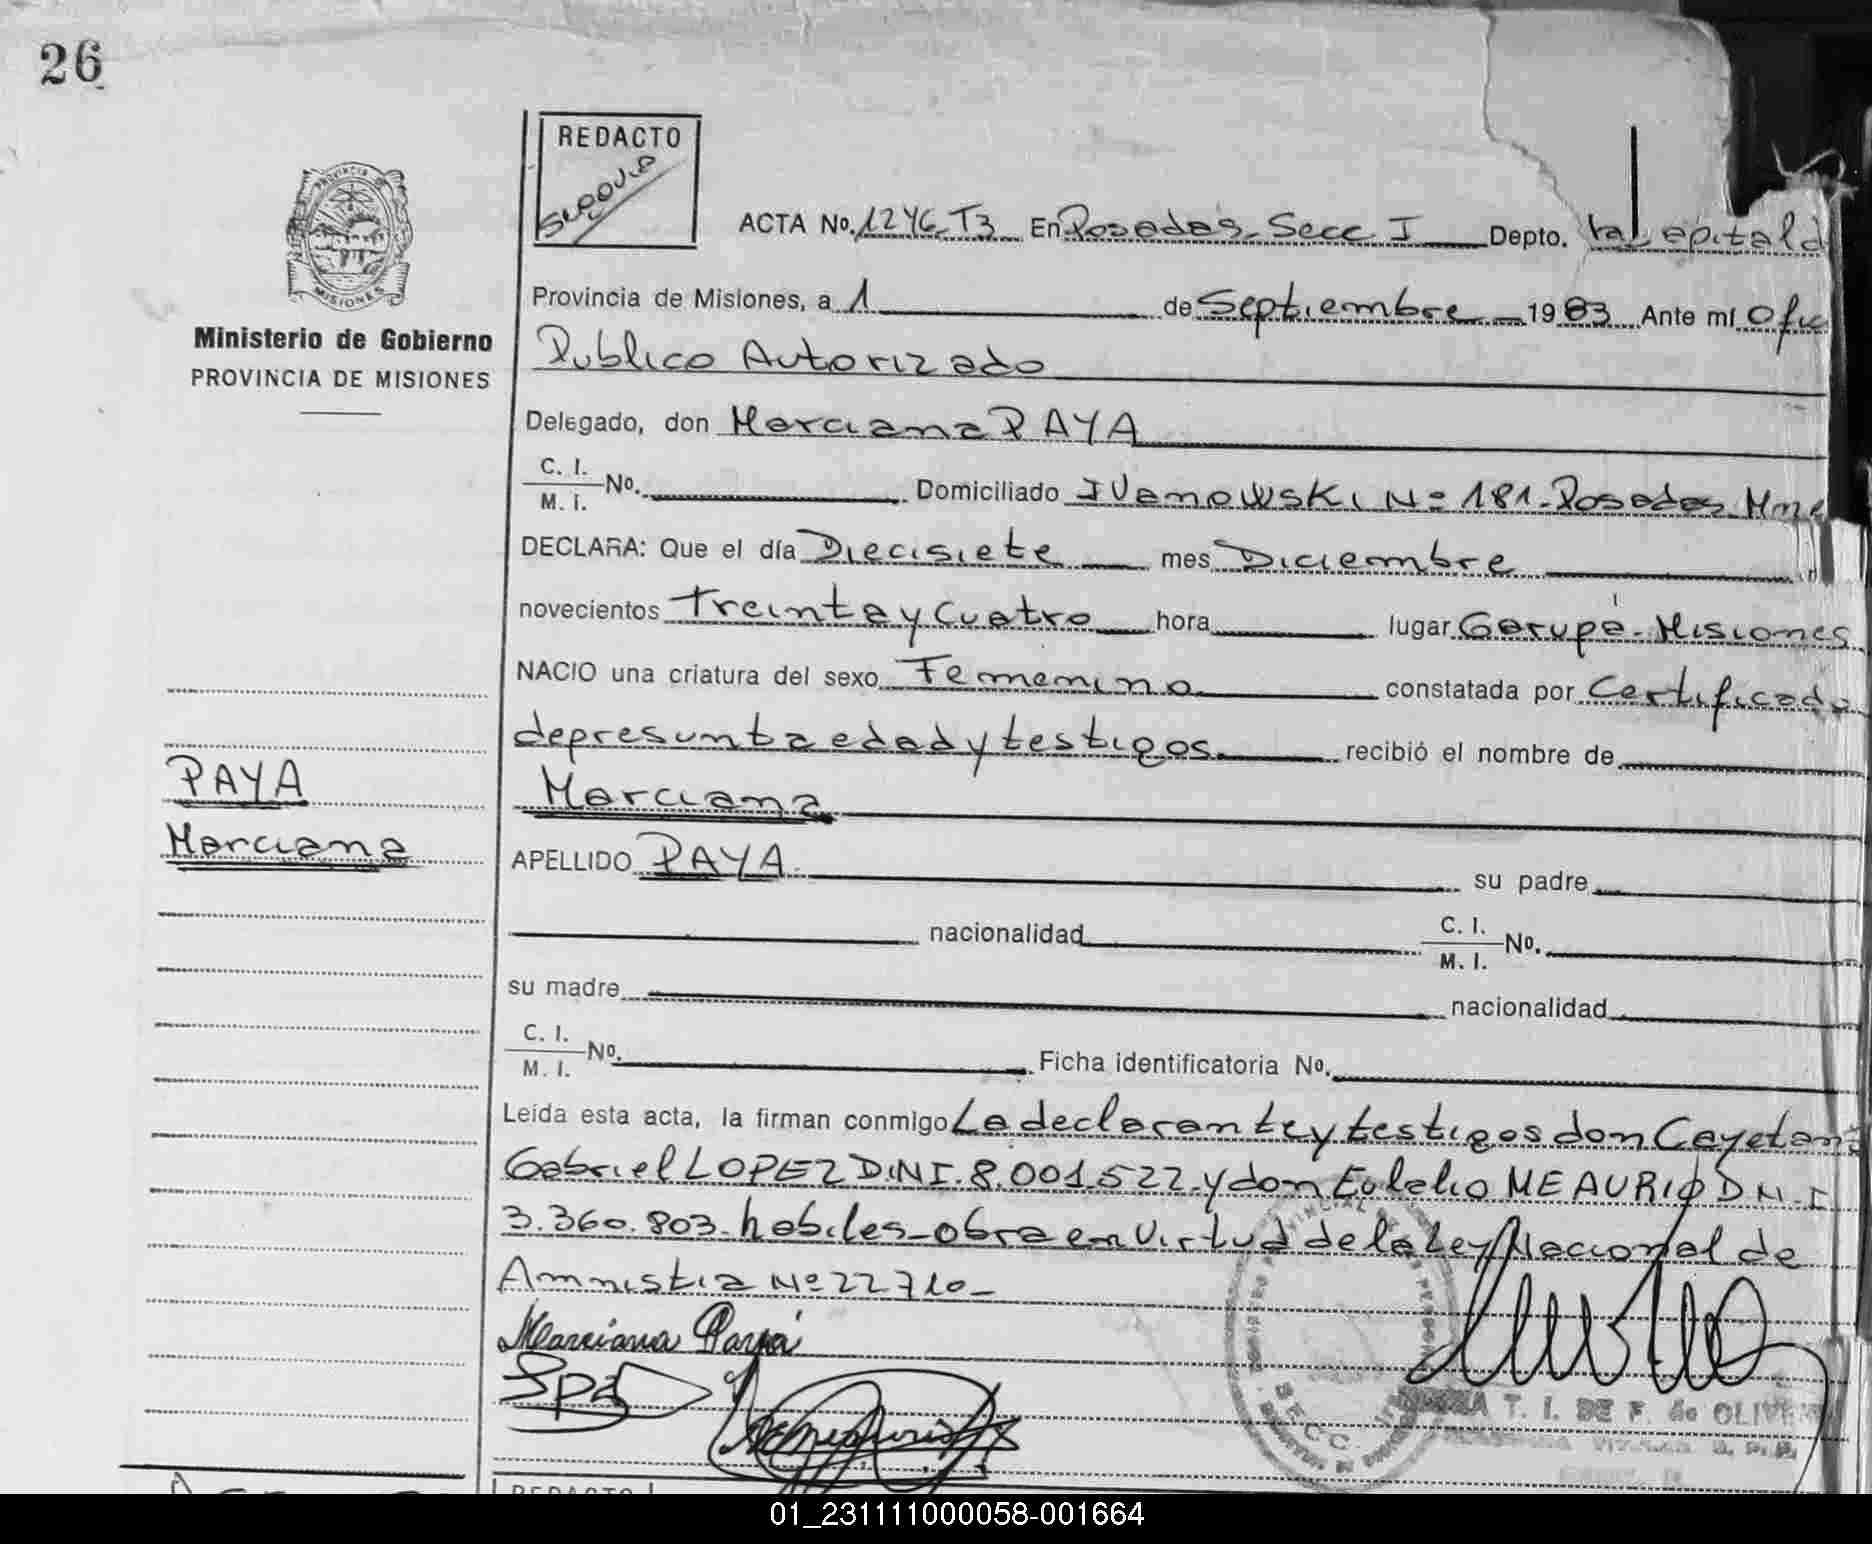 26
REDACTO
Segovia
ACTA No. 1246-T3 En Posadas-Secc I Depto. la Capital d
Provincia de Misiones, a 1 de Septiembre 1983 Ante mí Ofic
Publico Autorizado
PROVINCIA DE
MISIONES
Ministerio de Gobierno
PROVINCIA DE MISIONES
Delegado, don Marciana PAYA
C. I.
M. I. No. Domiciliado Ivanowski Nº 181-Posadas-Mnes
DECLARA: Que el día Diecisiete mes Diciembre
novecientos Treinta y Cuatro hora lugar Garupá-Misiones
NACIO una criatura del sexo Femenino constatada por Certificado
de presunta edad y testigos. recibió el nombre de
PAYA
Marciana
Marciana
APELLIDO PAYA su padre
nacionalidad C. I.
M. I. No.
su madre nacionalidad
C. I.
M. I. No. Ficha identificatoria No.
Leída esta acta, la firman conmigo La declarante y testigos don Cayetano
Gabriel LOPEZ D.N.I. 8.001.522 y don Eulalio MEAURIO D.N.I
3.360.803-habiles-obra en Virtud de la Ley Nacional de
Amnistia Nº 22710-
Marciana Paya
SECC.
T. I. DE F. de OLIVE
REDACTO
01_231111000058-001664